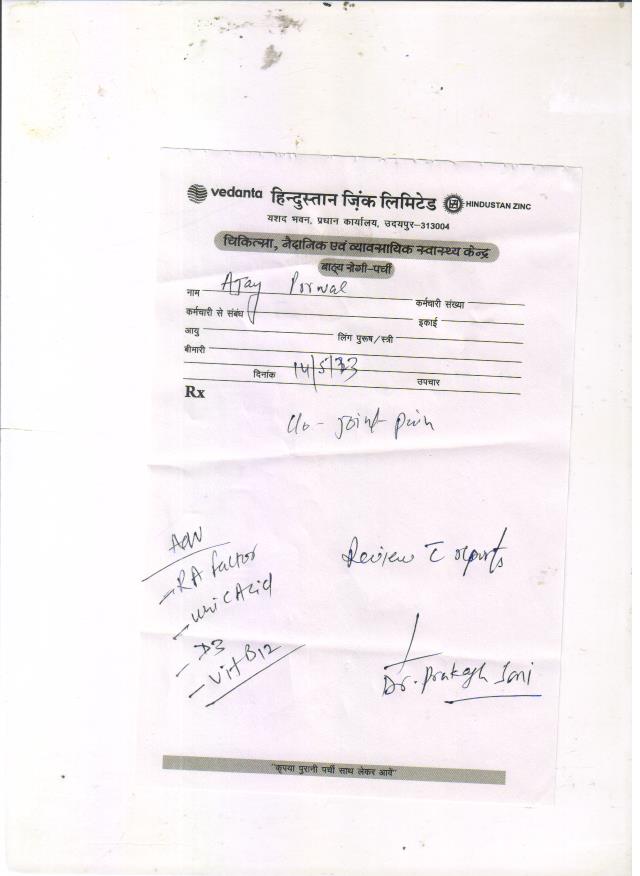 vedanta हिन्दुस्तान ज़िंक लिमिटेड HINDUSTAN ZINC
यशद भवन, प्रधान कार्यालय, उदयपुर-313004
चिकित्सा, नैदानिक एवं व्यावसायिक स्वास्थ्य केन्द्र
बाह्य रोगी-पर्ची
नाम Ajay Porwal कर्मचारी संख्या
कर्मचारी से संबंध इकाई
आयु लिंग पुरूष/स्त्री
बीमारी
दिनांक 14/5/ उपचार
Rx
c/o - joint pain
Adv
- RA factor
- Uric Acid
- D3
- Vit B12
Review c̄ reports
Dr. Prakash
"कृपया पुरानी पर्ची साथ लेकर आवें"